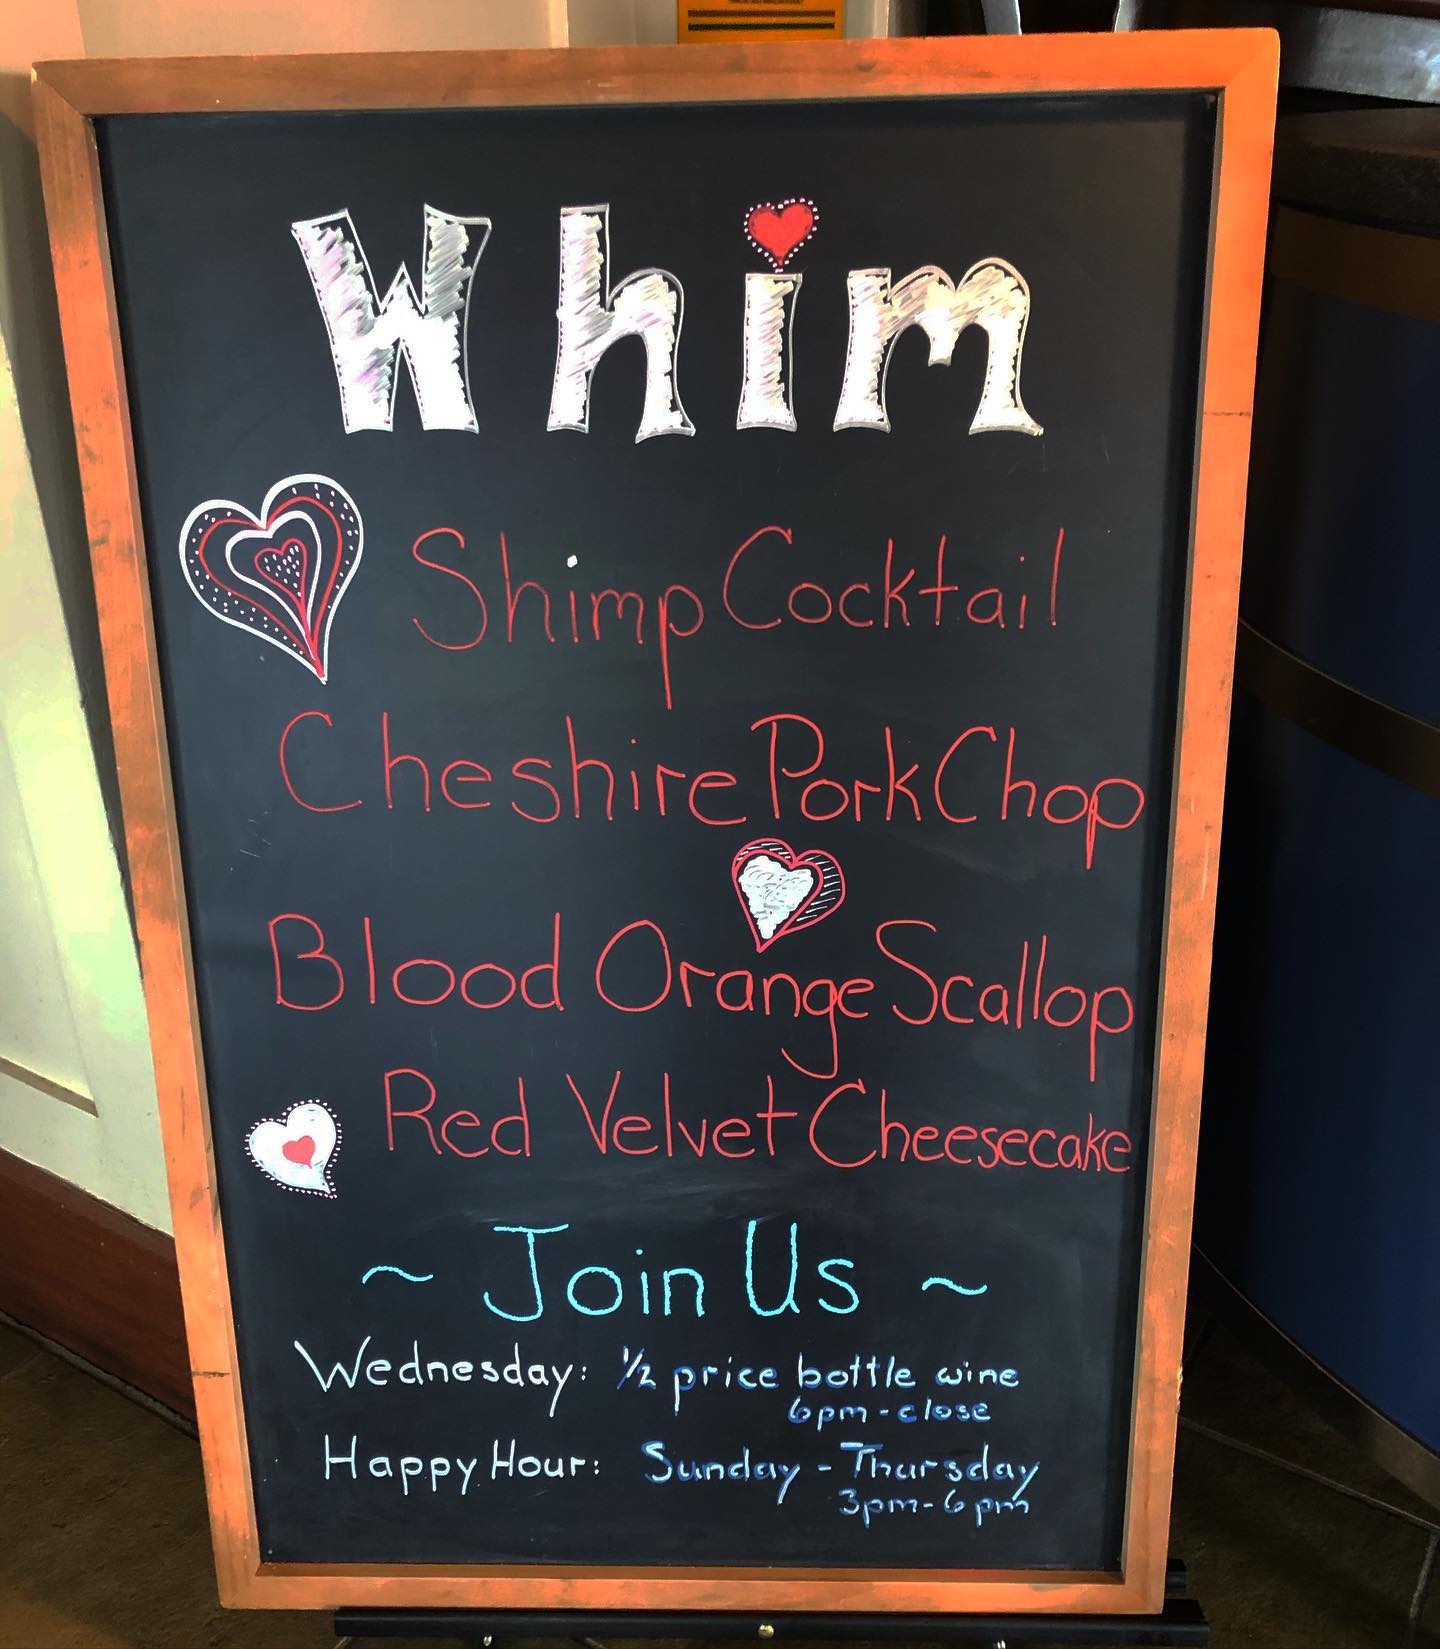 Whim
Shimp Cocktail
Cheshire Pork Chop
Blood Orange Scallop
Red Velvet Cheesecake
~ Join Us ~
Wednesday: 1/2 price bottle wine
6pm - close
Happy Hour: Sunday - Thursday
3pm - 6pm